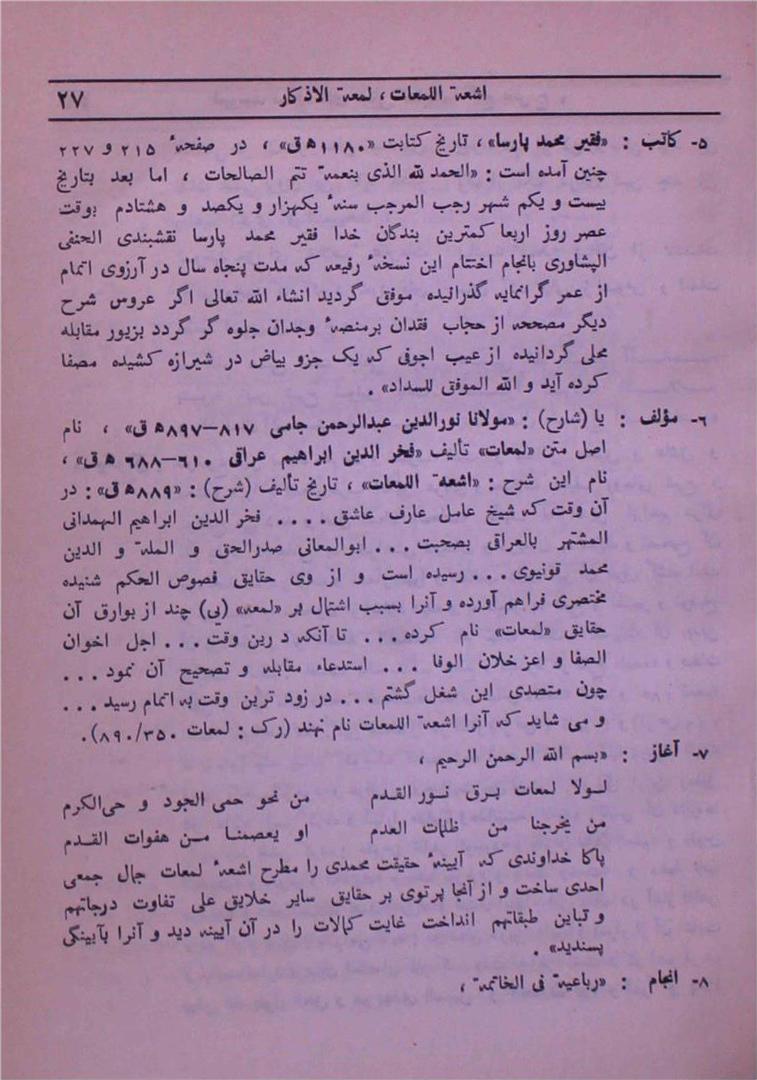 اشعة اللمعات ، لمعة الاذکار ۲۷
۵- کاتب : «فقیر محمد پارسا» ، تاریخ کتابت «۱۱۸۰ ه ق» ، در صفحهٔ ۲۱۵ و ۲۲۷
چنین آمده است : «الحمد لله الذی بنعمة تتم الصالحات ، اما بعد بتاریخ
بیست و یکم شهر رجب المرجب سنهٔ یکهزار و یکصد و هشتادم بوقت
عصر روز اربعا کمترین بندگان خدا فقیر محمد پارسا نقشبندی الحنفی
الپشاوری بانجام اختتام این نسخهٔ رفیعه که مدت پنجاه سال در آرزوی اتمام
از عمر گرانمایه گذرانیده موفق گردید انشاء الله تعالی اگر عروس شرح
دیگر مصححه از حجاب فقدان برمنصهٔ وجدان جلوه گر گردد بزیور مقابله
محلی گردانیده از عیب اجوفی که یک جزو بیاض در شیرازه کشیده مصفا
کرده آید و الله الموفق للسداد» .
۶- مؤلف : یا (شارح) : «مولانا نورالدین عبدالرحمن جامی ۸۱۷—۸۹۷ ه ق» ، نام
اصل متن «لمعات» تألیف «فخر الدین ابراهیم عراقی ۶۱۰—۶۸۸ ه ق» ،
نام این شرح : «اشعة اللمعات» ، تاریخ تألیف (شرح) : «۸۸۹ ه ق» : در
آن وقت که شیخ عامل عارف عاشق . . . . فخر الدین ابراهیم الهمدانی
المشتهر بالعراقی بصحبت . . . ابوالمعانی صدرالحق و الملة و الدین
محمد قونیوی . . . رسیده است و از وی حقایق فصوص الحکم شنیده
مختصری فراهم آورده و آنرا بسبب اشتمال بر «لمعه» (یی) چند از بوارق آن
حقایق «لمعات» نام کرده . . . تا آنکه درین وقت . . . اجل اخوان
الصفا و اعز خلان الوفا . . . استدعاء مقابله و تصحیح آن نمود . . .
چون متصدی این شغل گشتم . . . در زود ترین وقت به اتمام رسید . . .
و می شاید که آنرا اشعة اللمعات نام نهند (رک : لمعات ۸۹۰/۳۵۰).
۷- آغاز : «بسم الله الرحمن الرحیم ،
لولا لمعات برق نور القدم من نحو حمی الجود و حی الکرم
من یخرجنا من ظلمات العدم او یعصمنا من هفوات القدم
پاکا خداوندی که آیینهٔ حقیقت محمدی را مطرح اشعهٔ لمعات جمال جمعی
احدی ساخت و از آنجا پرتوی بر حقایق سایر خلایق علی تفاوت درجاتهم
و تباین طبقاتهم انداخت غایت کمالات را در آن آیینه دید و آنرا بآیینگی
پسندید» .
۸- انجام : «رباعیة فی الخاتمة ،